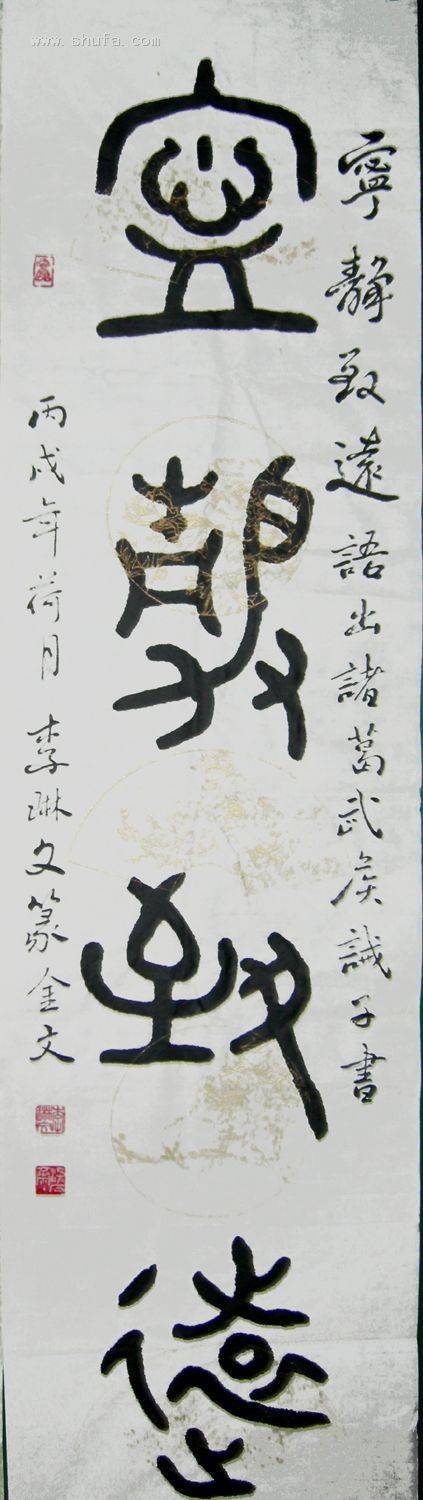 www.shufa.com
寧靜致遠語出諸葛武侯誡子書
寧
靜
致
遠
丙戌年荷月李琳文篆金文